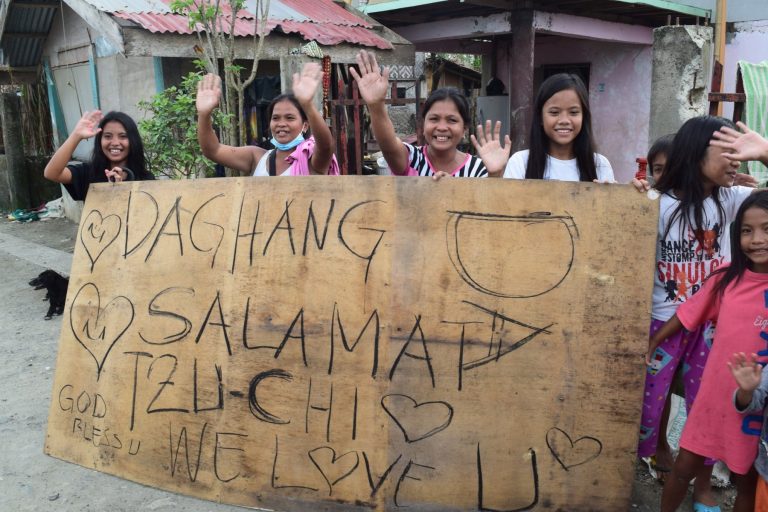 DAGHANG
SALAMAT
TZU-CHI
GOD
BLESS U
WE LOVE U
DANCE
STOMP
SINULOG